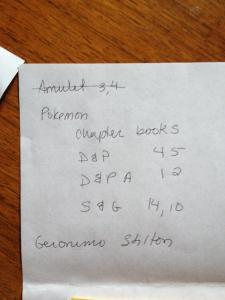 Amulet 3,4
Pokemon
chapter books
D&P 4 5
D&P A 1 2
S & G 14, 10
Geronimo Stilton